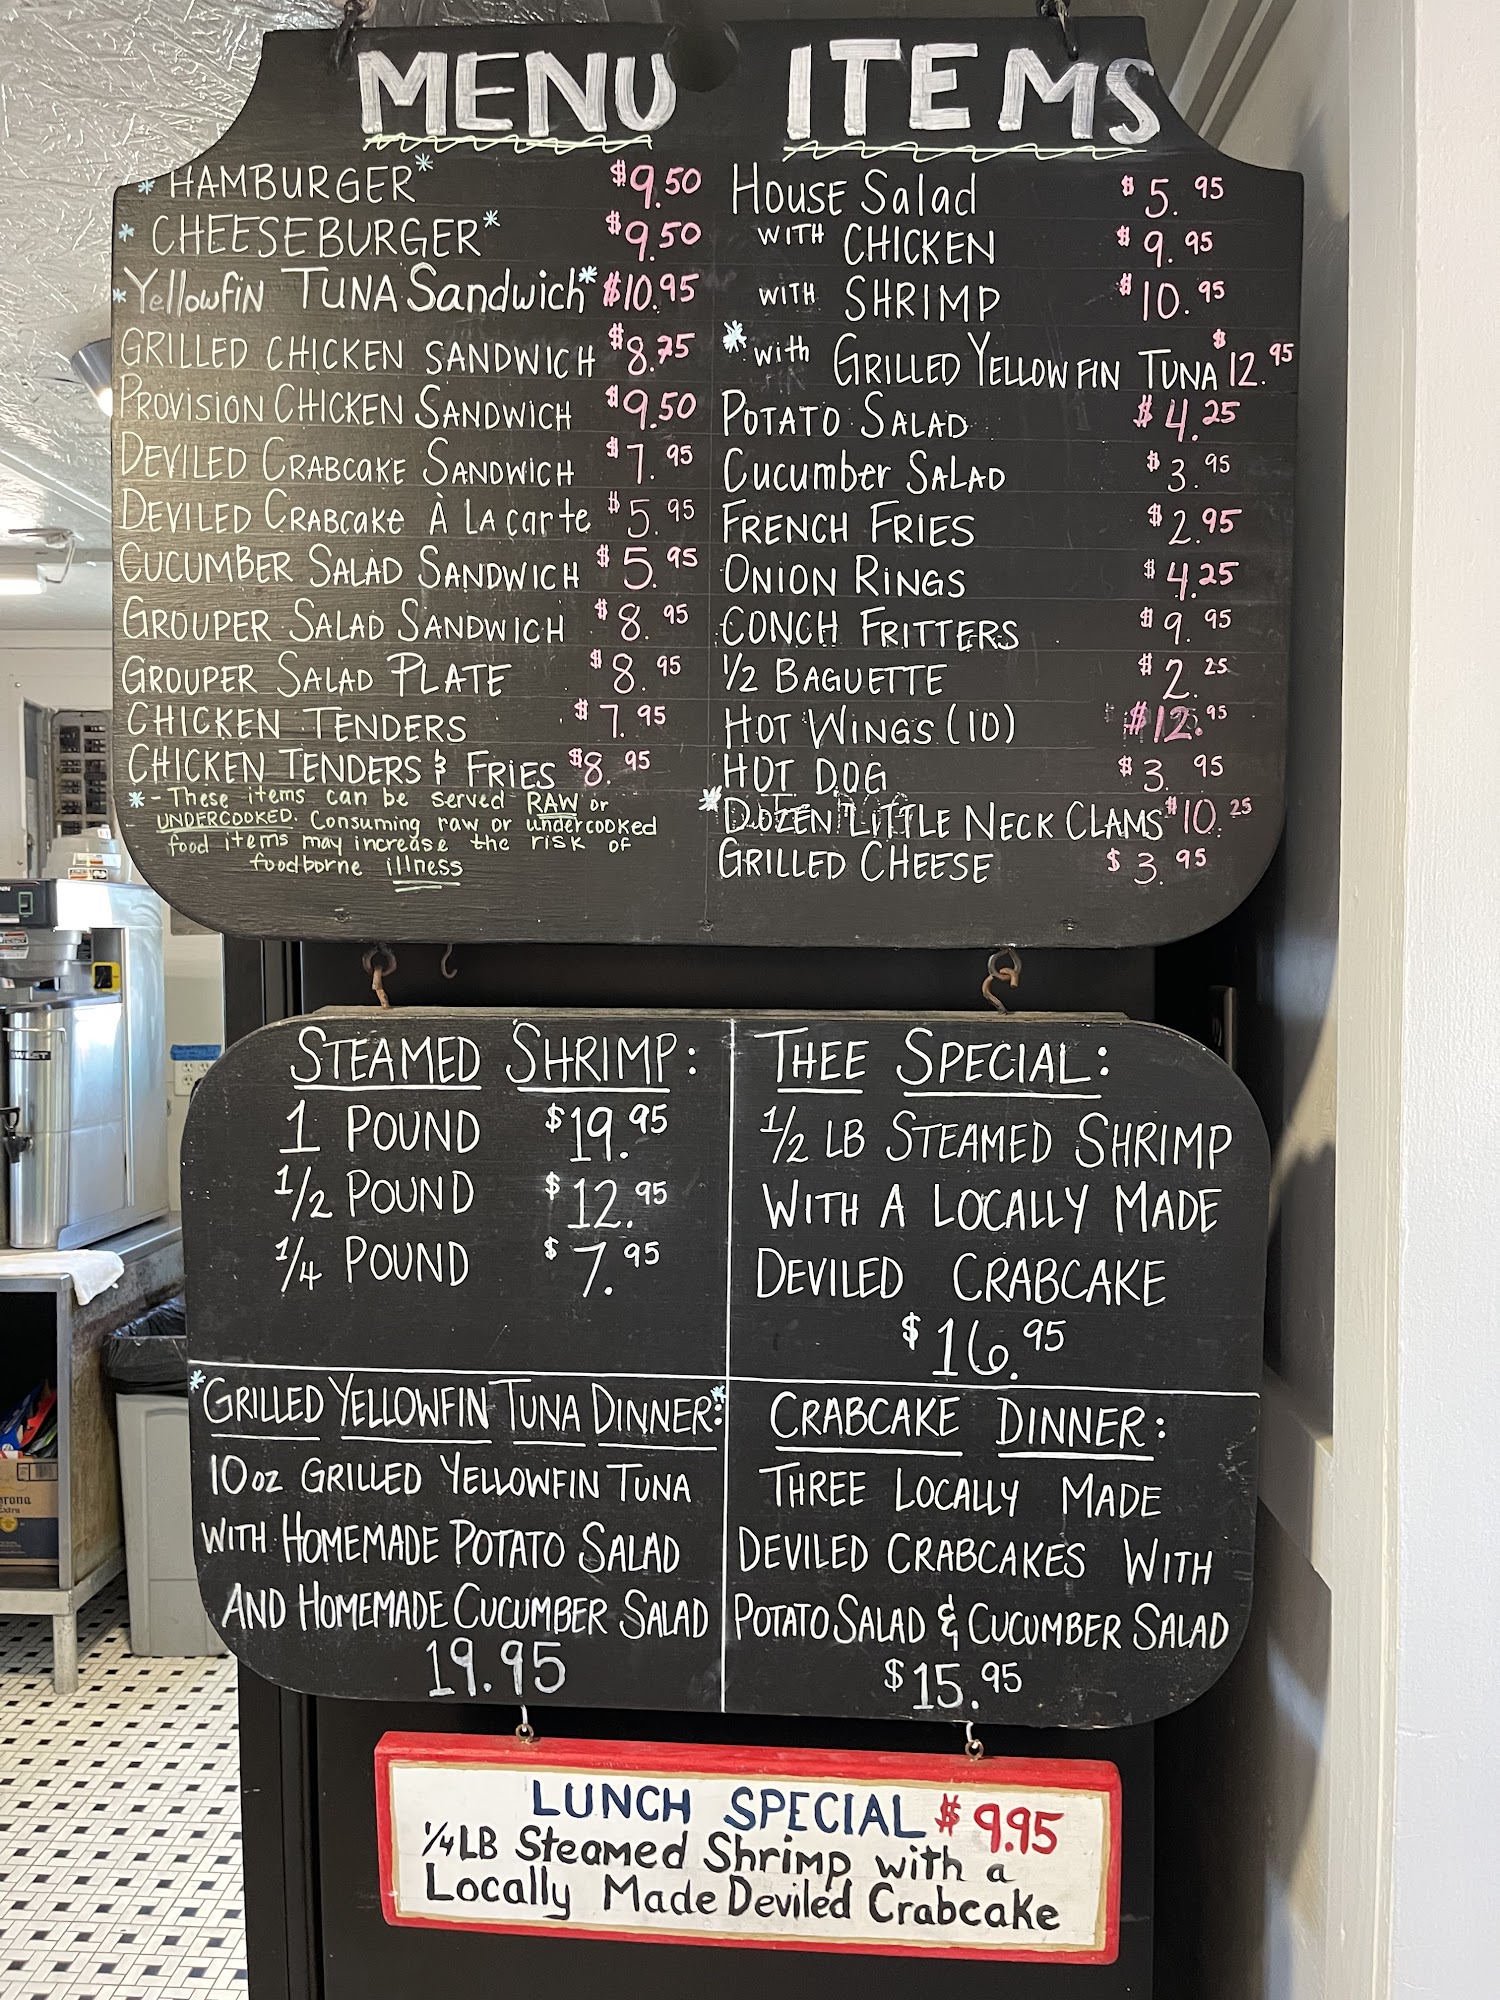 MENU ITEMS
* HAMBURGER* $9.50
* CHEESEBURGER* $9.50
* Yellowfin TUNA Sandwich* $10.95
GRILLED CHICKEN SANDWICH $8.75
PROVISION CHICKEN SANDWICH $9.50
DEVILED CRABCAKE SANDWICH $7.95
DEVILED CRABCAKE À LA CARTE $5.95
CUCUMBER SALAD SANDWICH $5.95
GROUPER SALAD SANDWICH $8.95
GROUPER SALAD PLATE $8.95
CHICKEN TENDERS $7.95
CHICKEN TENDERS & FRIES $8.95
* - These items can be served RAW or
UNDERCOOKED. Consuming raw or undercooked
food items may increase the risk of
foodborne illness
House Salad $5.95
WITH CHICKEN $9.95
WITH SHRIMP $10.95
* with GRILLED YELLOWFIN TUNA $12.95
POTATO SALAD $4.25
Cucumber SALAD $3.95
FRENCH FRIES $2.95
ONION RINGS $4.25
CONCH FRITTERS $9.95
1/2 BAGUETTE $2.25
HOT WINGS (10) $12.95
HOT DOG $3.95
* DOZEN LITTLE NECK CLAMS $10.25
GRILLED CHEESE $3.95
STEAMED SHRIMP:
1 POUND $19.95
1/2 POUND $12.95
1/4 POUND $7.95
THEE SPECIAL:
1/2 LB STEAMED SHRIMP
WITH A LOCALLY MADE
DEVILED CRABCAKE
$16.95
*GRILLED YELLOWFIN TUNA DINNER:*
10 oz GRILLED YELLOWFIN TUNA
WITH HOMEMADE POTATO SALAD
AND HOMEMADE CUCUMBER SALAD
19.95
CRABCAKE DINNER:
THREE LOCALLY MADE
DEVILED CRABCAKES WITH
POTATO SALAD & CUCUMBER SALAD
$15.95
LUNCH SPECIAL $9.95
1/4 LB Steamed Shrimp with a
Locally Made Deviled Crabcake